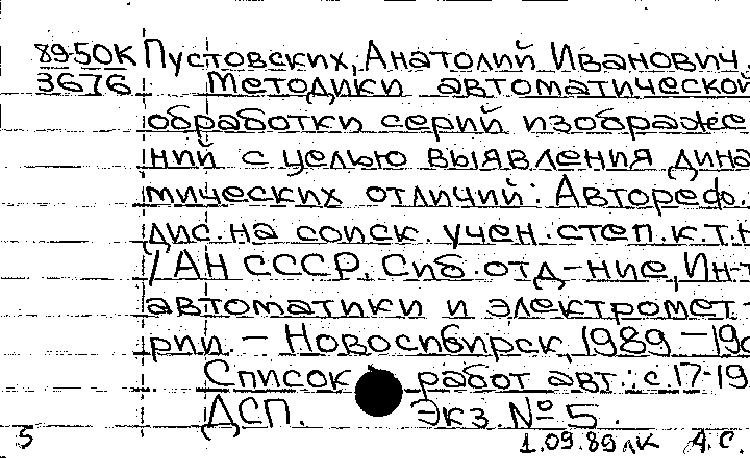 89-50К Пустовских, Анатолий Иванович.
3676 Методики автоматической
обработки серий изображе
ний с целью выявления дина
мических отличий: Автореф.
дис. на соиск. учен. степ. к.т.н
/ АН СССР. Сиб. отд-ние, Ин-т
автоматики и электромет-
рии. – Новосибирск, 1989 – 19с
Список работ авт.: с.17-19
ДСП. Экз. № 5.
5 1.09.89 А.С.